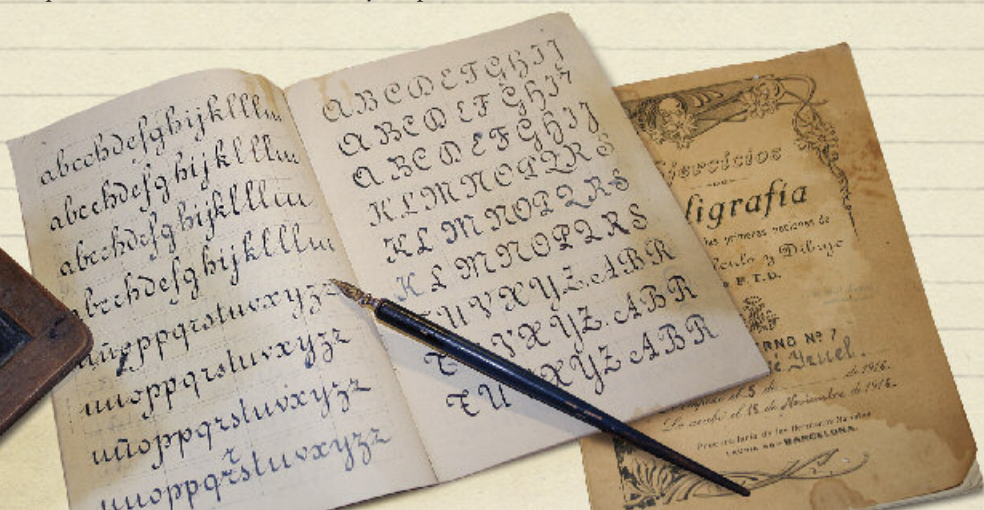 abcchdefghijklllm
abcchdefghijklllm
abcchdefghijklllm
abcchdefghijklllm
nñoppqrstuvxyzz
nñoppqrstuvxyzz
nñoppqrstuvxyzz
nñoppqrstuvxyzz
ABCDEFGHIJ
ABCDEFGHIJ
ABCDEFGHIJ
KLMNOPQRS
KLMNOPQRS
KLMNOPQRS
TUVXYZ. ABR
VXYZ. ABR
TU XYZ ABR
Ejercicios
ligrafía
las primeras nociones de
Dibujo
F.T.D.
RNO Nº 7
Gruel.
de 1916.
La acabó el 18 de Noviembre de 1916.
BARCELONA.